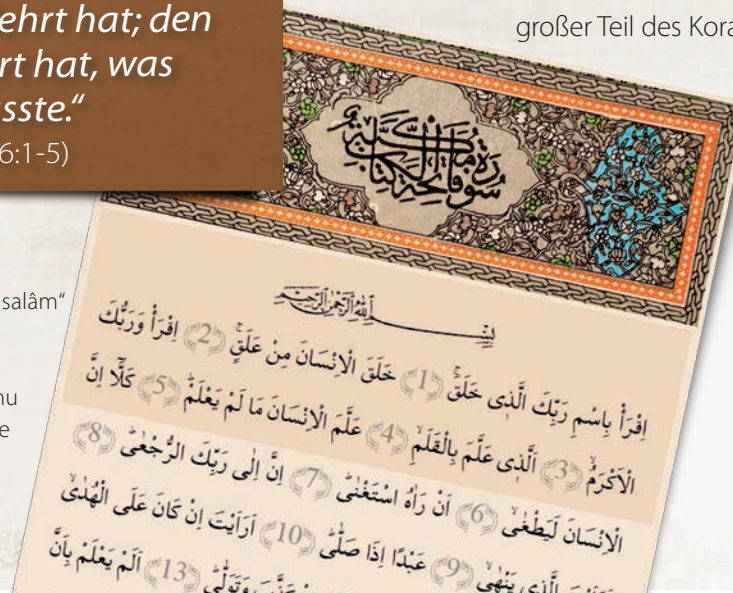 ehrt hat; den
rt hat, was
sste.“
6:1-5)
großer Teil des Kora
salâm“
nu
e
سورة فاتحة الكتاب مكية
بسم الله الرحمن الرحيم
اِقْرَأْ بِاسْمِ رَبِّكَ الَّذِى خَلَقَۚ (1) خَلَقَ الْاِنْسَانَ مِنْ عَلَقٍۚ (2) اِقْرَأْ وَرَبُّكَ
الْاَكْرَمُۙ (3) اَلَّذِى عَلَّمَ بِالْقَلَمِۙ (4) عَلَّمَ الْاِنْسَانَ مَا لَمْ يَعْلَمْۜ (5) كَلَّٓا اِنَّ
الْاِنْسَانَ لَيَطْغٰىۙ (6) اَنْ رَاٰهُ اسْتَغْنٰىۜ (7) اِنَّ اِلٰى رَبِّكَ الرُّجْعٰىۜ (8)
الَّذِى يَنْهٰىۙ (9) عَبْدًا اِذَا صَلّٰىۜ (10) اَرَاَيْتَ اِنْ كَانَ عَلَى الْهُدٰىۙ
وَتَوَلّٰىۜ (13) اَلَمْ يَعْلَمْ بِاَنَّ